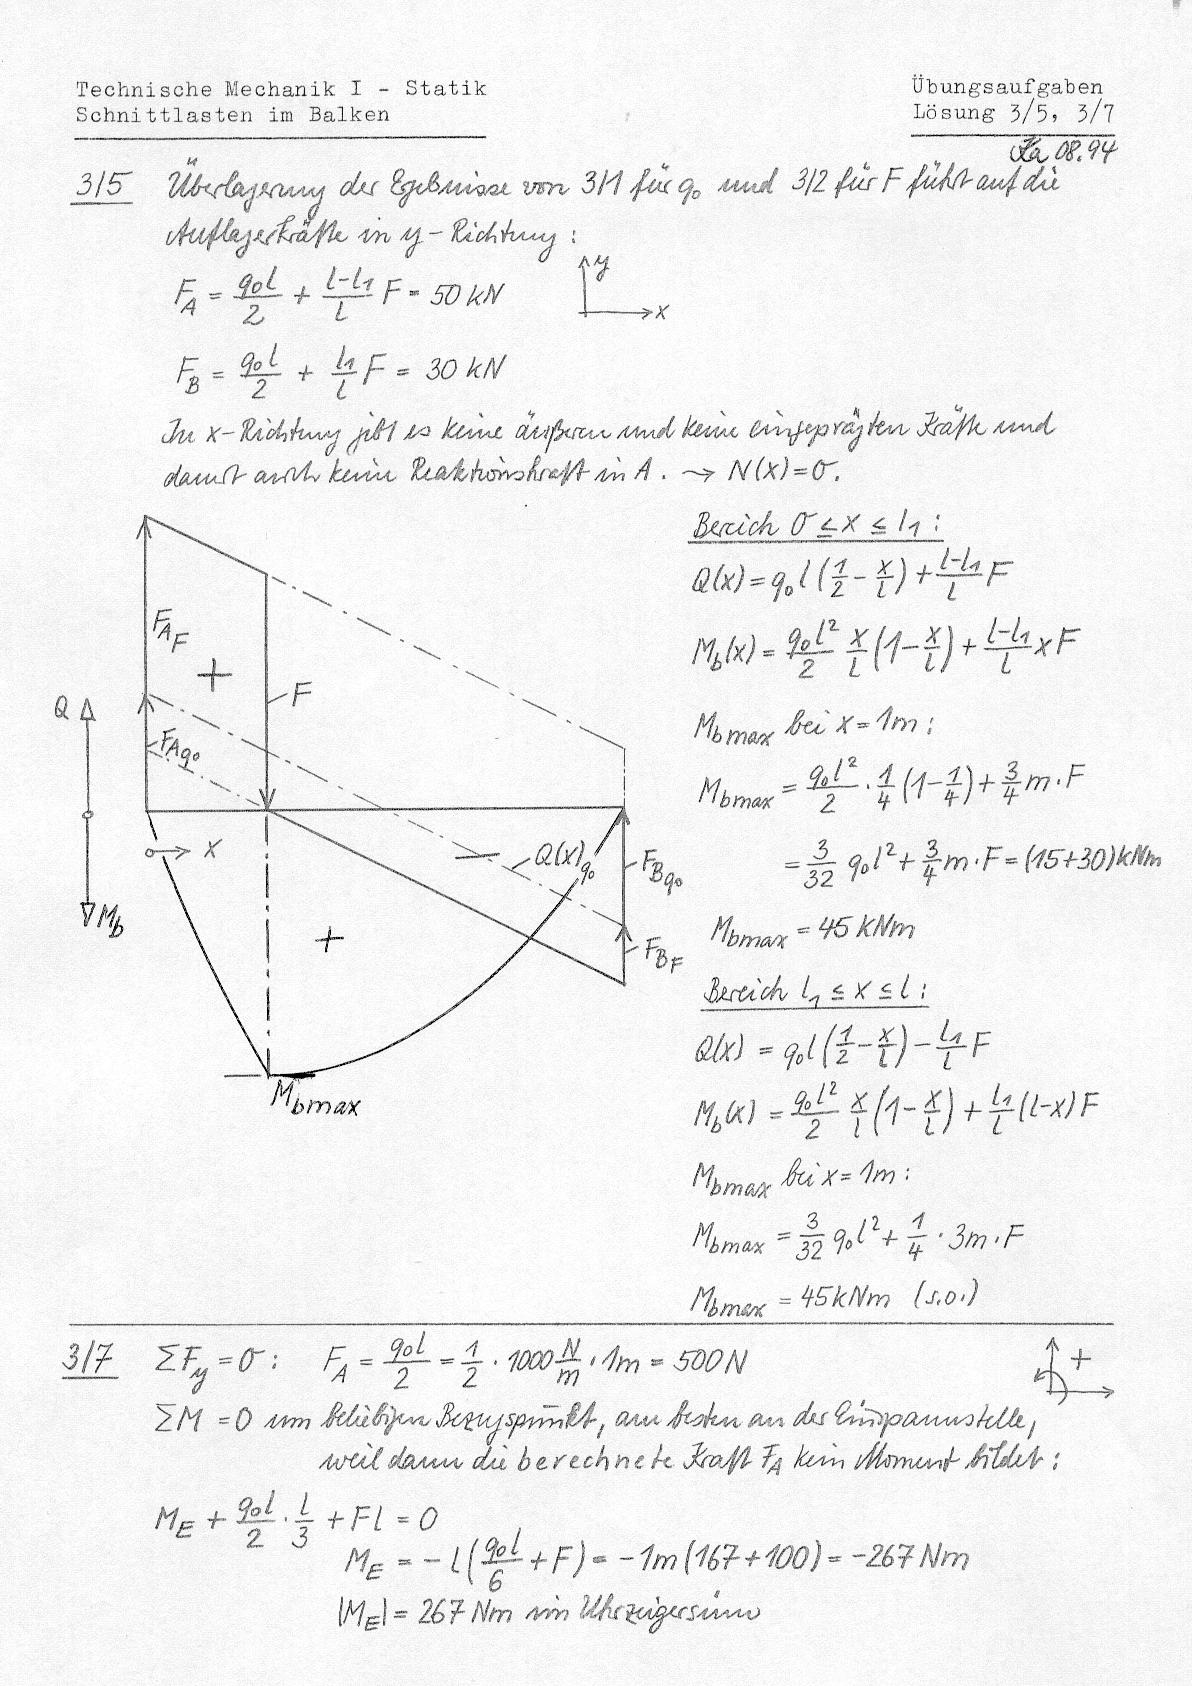 Technische Mechanik I - Statik
Schnittlasten im Balken
Übungsaufgaben
Lösung 3/5, 3/7
08.94
3/5 Überlagerung der Ergebnisse von 3/1 für q₀ und 3/2 für F führt auf die
Auflagerkräfte in y-Richtung:
F_A = q₀l/2 + (l-l₁)/l F = 50 kN
y
x
F_B = q₀l/2 + l₁/l F = 30 kN
In x-Richtung gibt es keine äußeren und keine eingeprägten Kräfte und
damit auch keine Reaktionskraft in A. → N(x)=0.
F_AF
+
F
Q
F_Aq₀
x
Q(x)q₀
F_Bq₀
M_b
+
F_BF
M_bmax
Bereich 0 ≤ x ≤ l₁:
Q(x) = q₀l(1/2 - x/l) + (l-l₁)/l F
M_b(x) = q₀l²/2 x/l (1 - x/l) + (l-l₁)/l x F
M_bmax bei x = 1m:
M_bmax = q₀l²/2 · 1/4 (1 - 1/4) + 3/4 m · F
= 3/32 q₀l² + 3/4 m · F = (15+30)kNm
M_bmax = 45 kNm
Bereich l₁ ≤ x ≤ l:
Q(x) = q₀l(1/2 - x/l) - l₁/l F
M_b(x) = q₀l²/2 x/l (1 - x/l) + l₁/l (l-x) F
M_bmax bei x = 1m:
M_bmax = 3/32 q₀l² + 1/4 · 3m · F
M_bmax = 45 kNm (s.o.)
3/7 ΣF_y = 0: F_A = q₀l/2 = 1/2 · 1000 N/m · 1m = 500 N
+
ΣM = 0 um beliebigen Bezugspunkt, am besten an der Einspannstelle,
weil dann die berechnete Kraft F_A kein Moment bildet:
M_E + q₀l/2 · l/3 + Fl = 0
M_E = - l(q₀l/6 + F) = -1m(167+100) = -267 Nm
|M_E| = 267 Nm im Uhrzeigersinn